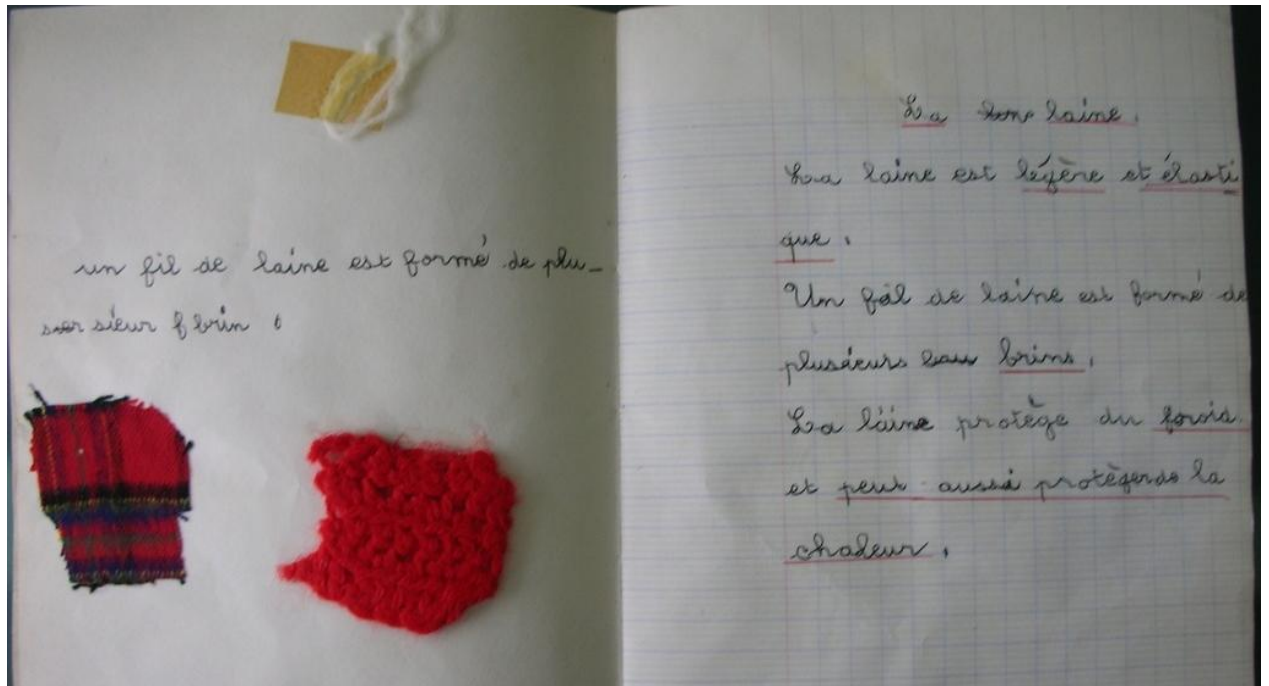 un fil de laine est formé de plu-
sieur brin
La laine.
La laine est légère et élasti
que.
Un fil de laine est formé de
plusieurs brins.
La laine protège du froid.
et peut aussi protéger de la
chaleur.